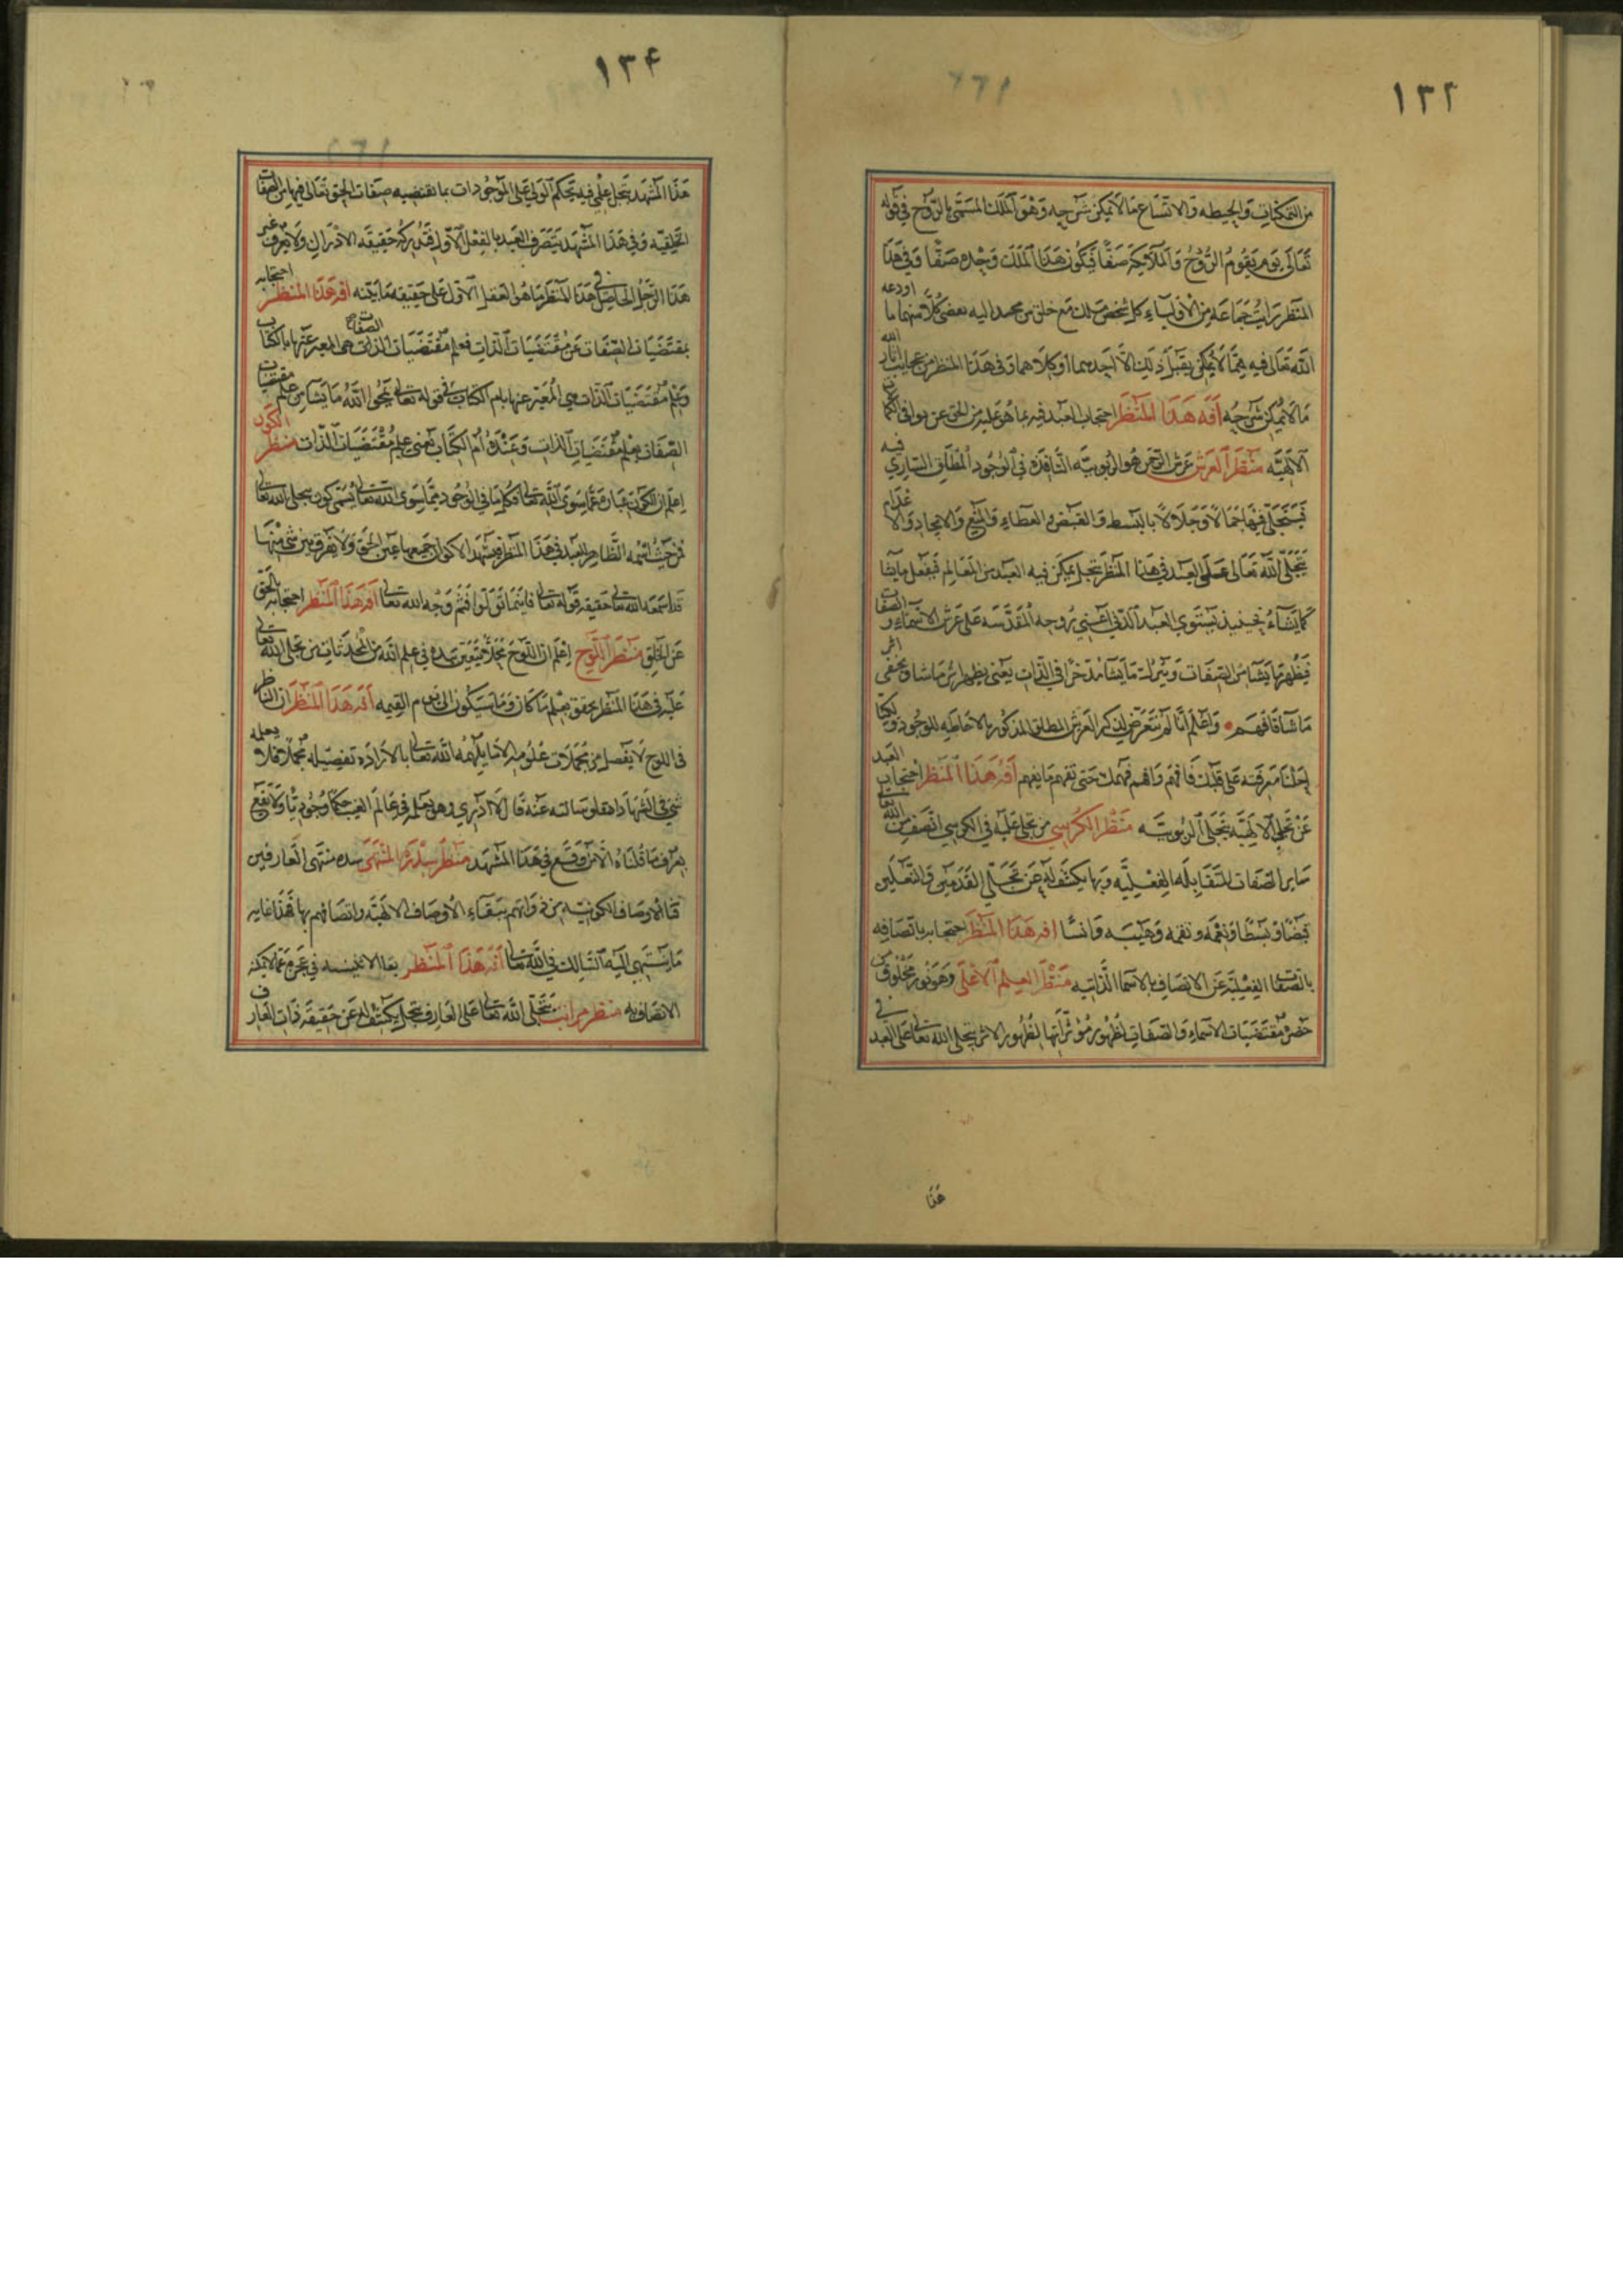 ١٣٣
من التمكنات والحيطه والاتساع مالا يمكن شرحه وهو الملك المسمى بالروح في قوله
تعالى يوم يقوم الروح والملائكة صفا فيكون هذا الملك وحده صفا وفي هذا
المنظر رايت جماعة من الاولياء كل شخص ملك مع خلق من محمد اليه بعضى كلا منهما ما اودعه
الله تعالى فيه مما لا يمكن يقبل ذلك الا احدهما او كلاهما وفي هذا المنظر من عجايب اثار الله
ما لا يمكن شرحه آفة هذا المنظر احتجاب العبد فيه بما هو عليه من الحق عن بواقي الكمالات
الالهية منظر العرش عرش الرحمن هو الربوبيه النافذه في الوجود المطلق الساري فيه
فيتجلى فيها جمالا وجلالا بالبسط والقبض والعطاء والمنع والايجاد والاعدام
يتجلى الله تعالى على العبد في هذا المنظر تجلي يمكن فيه العبد من العالم فيفعل ما يشا
كما يشاء فحينيذ يستوي العبد الذي اعني روحه المقدسه على عرش الاسماء والصفات
فيظهر ما يشا من الصفات ويترك ما يشا مدخرا في الذات يعني يظهر اثر ما شا ويخفي
ما شآ فافهم واعلم انا لم نتعرض لذكر العرش المطلق المذكور بالاحاطه للوجود ولكنا
احلنا معرفته على قلبك فافهم وافهم فهمك حتى تفهم ما يفهم آفة هذا المنظر احتجاب العبد
عن تجلي الالهية بتجلي الربوبيه منظر الكرسي من تجلى عليه في الكرسي اتصف من الله تعالى
ساير الصفات المتقابله الفعليه وبها يكشف له عن تجلي القدمين والنعلين
قبضا وبسطا ونعمه ونقمه وهيبه وانسا افه هذا المنظر احتجابه باتصافه
بالصفات الفعلية عن الاتصاف بالاسما الذاتيه منظر العلم الاعلى وهو نور مخلوق من
حضرة مقتضيات الاسماء والصفات لظهور مؤثراتها لظهور الاثر يتجلى الله تعالى على العبد في
هذا
١٣٤
هذا المشهد بتجل علمي فيه يتحكم الولي على الموجودات بما تقتضيه صفات الحق تعالى فيها من الصفات
الخلقيه وفي هذا المشهد يتصرف العبد بالفعل الاول فيدركه حقيقه الادراك ولا يعرف غير
هذا الرجل الحاصل في هذا المنظر ما هو العقل الاول على حقيقه ما يتنه افه هذا المنظر احتجابه
بمقتضيات الصفات عن مقتضيات الذات فعلم مقتضيات الصفات هي المعبر عنها بالكتاب
وعلم مقتضيات الذات هي المعبر عنها بام الكتاب في قوله تعالى يمحى الله ما يشا من علم مقتضيات
الصفات بعلم مقتضيات الذات وعنده ام الكتاب يعني علم مقتضيات الذات منظر الكون
اعلم ان الكون عبارة عما سوى الله تعالى فكلما في الوجود مما سوى الله تعالى يسمى كون يتجلى الله تعالى
من حيث اسمه الظاهر للعبد في هذا المنظر فيشهد الاكوان جميعها عين الحق ولا يفرق بين شئ منها
قد اسمعه الله تعالى حقيقه قوله تعالى فاينما تولوا فثم وجه الله تعالى افه هذا المنظر احتجابه بالحق
عن الخلق منظر اللوح اعلم ان اللوح مجلا متعين سده في علم الله من المحدثات من تجلى الله تعالى
عليه في هذا المنظر تحقق بعلم ما كان وما سيكون الى يوم القيمه افة هذا المنظر ان الناظر
في اللوح لا يفصل من مجملات علومه الا ما يلهمه الله تعالى بالاراده تفصيله مجملا فلا
شئ في الشهادا فقلو سالته عنه قال لا ادري وهو يعلمه في عالم الغيب حكما وجوديا ولا نفع
يعرف ما قلناه الا من وقع في هذا المشهد منظر سدرة المنتهى سده منتهى العارفين
فنا الاوصاف الكونيه من ذواتهم ببقاء الاوصاف الالهية واتصافهم بها فهذا غايه
ما ينتهي اليه السالك في الله تعالى افة هذا المنظر بقا الانيسه في عجزه عما لا يمكنه
الاتصاف به منظر مراتب يتجلى الله تعالى على العارف بتجل يكشف له عن حقيقة ذات العارف